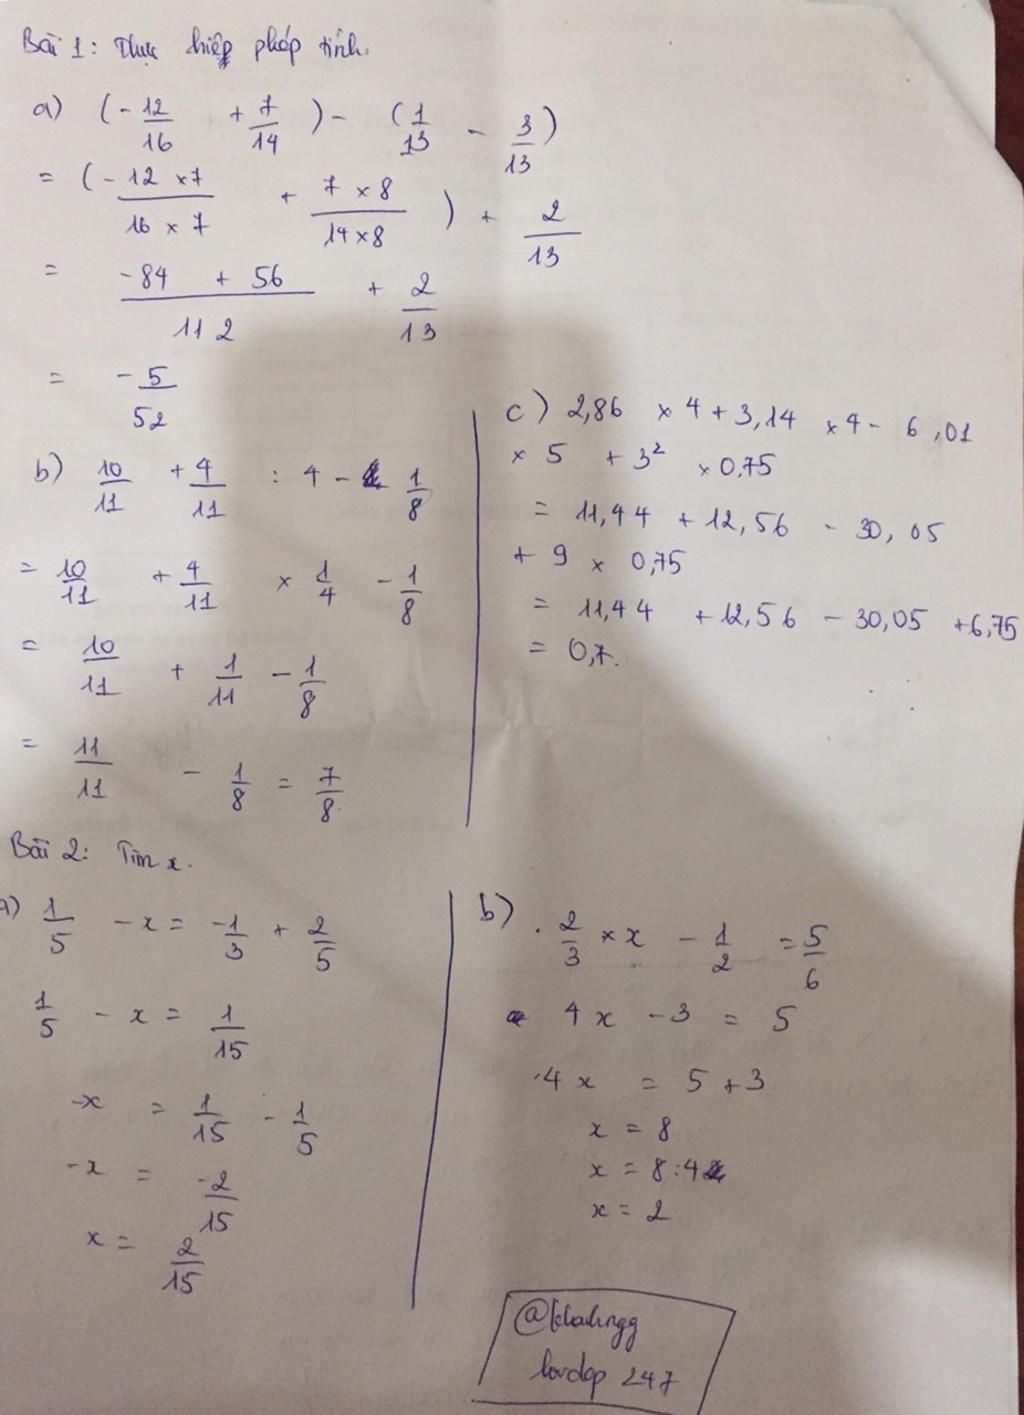 Bài 1: Thực hiện phép tính.
a) (-12/16 + 7/14) - (1/13 - 3/13)
= (-12 × 7 / 16 × 7 + 7 × 8 / 14 × 8) + 2/13
= -84 + 56 / 112 + 2/13
= -5/52
b) 10/11 + 4/11 : 4 - 1/8
= 10/11 + 4/11 × 1/4 - 1/8
= 10/11 + 1/11 - 1/8
= 11/11 - 1/8 = 7/8
c) 2,86 × 4 + 3,14 × 4 - 6,01
× 5 + 3² × 0,75
= 11,44 + 12,56 - 30,05
+ 9 × 0,75
= 11,44 + 12,56 - 30,05 + 6,75
= 0,7.
Bài 2: Tìm x.
a) 1/5 - x = -1/3 + 2/5
1/5 - x = 1/15
-x = 1/15 - 1/5
-x = -2/15
x = 2/15
b) 2/3 × x - 1/2 = 5/6
4x - 3 = 5
4x = 5 + 3
x = 8
x = 8:4
x = 2
247